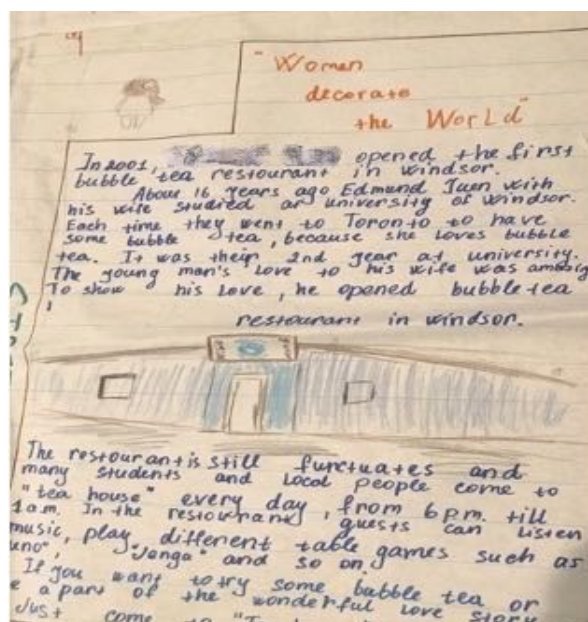 "Women
decorate
the World"
In 2001, opened the first
bubble tea restourant in windsor.
About 16 years ago Edmund Iuen with
his wife studied at university of windsor.
Each time they went to Toronto to have
some bubble tea, because she loves bubble
tea. It was their 2nd year at university.
The young man's love to his wife was amazing
To show his love, he opened bubble tea
restourant in windsor.
The restourant is still functuates and
many students and local people come to
"tea house" every day, from 6 p.m. till
1 am. In the restourant, guests can listen
music, play different table games such as
uno", "Jenga" and so on.
If you want to try some bubble tea or
a part of the wonderful love story
Just come to